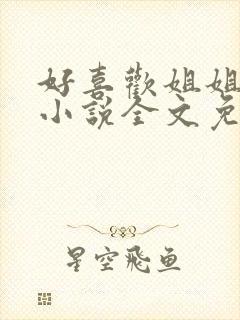 好喜歡姐姐
小說全文免
星空飛魚